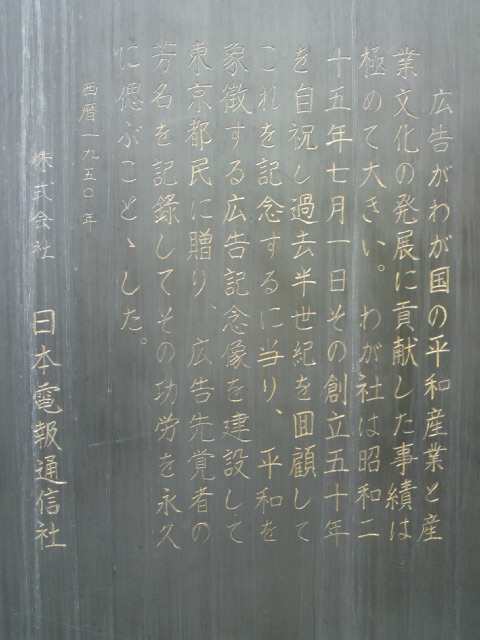 広告がわが国の平和産業と産
業文化の発展に貢献した事績は
極めて大きい。わが社は昭和二
十五年七月一日その創立五十年
を自祝し過去半世紀を回顧して
これを記念するに当り、平和を
象徴する広告記念像を建設して
東京都民に贈り、広告先覚者の
芳名を記録してその功労を永久
に偲ぶことゝした。
西暦一九五〇年
株式会社 日本電報通信社